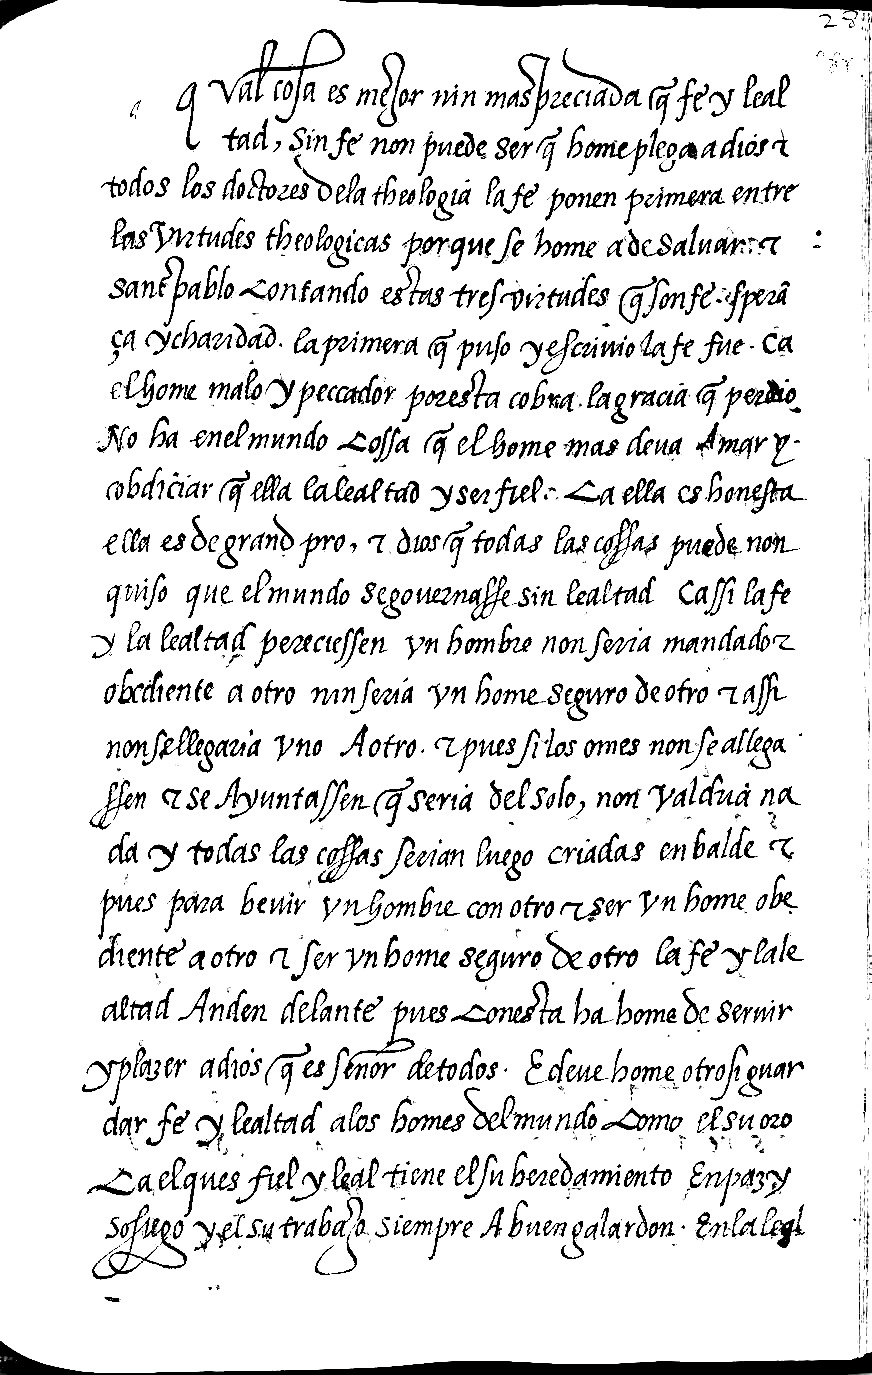 28
Qual cosa es mejor nin mas preciada q̃ fe y leal
tad, Sin fe non puede ser q̃ home plega a dios τ
todos los doctores dela theologia la fe ponen primera entre
las Virtudes theologicas por que se home a de saluar τ
Sant pablo Contando estas tres virtudes q̃ son fe. sperã
ça y charidad. la primera q̃ puso y escriuio la fe fue. Ca
el home malo y peccador por esta cobra la gracia q̃ perdio
No ha en el mundo Cossa q̃ el home mas deua Amar y
cobdiciar q̃ ella la lealtad y ser fiel. Ca ella es honesta
ella es de grand pro, τ dios q̃ todas las cossas puede non
quiso que el mundo se gouernasse sin lealtad Ca ssi la fe
y la lealtad pereciessen vn hombre non seria mandado τ
obediente a otro nin seria vn home seguro de otro τ assi
non se llegaria vno A otro. τ pues si los omes non se allega
ssen τ se Ayuntassen q̃ seria del solo, non valdua na
da y todas las cossas serian luego criadas en balde τ
pues para beuir vn hombre con otro τ ser vn home obe
diente a otro τ ser vn home seguro de otro la fe y la le
altad Anden delante pues Con esta ha home de seruir
y plazer a dios q̃ es señor de todos. E deue home otrosi guar
dar fe y lealtad a los homes del mundo Como el su oro
Ca el ques fiel y leal tiene el su heredamiento En paz y
sosiego y el su trabajo siempre A buen galardon. En la leal